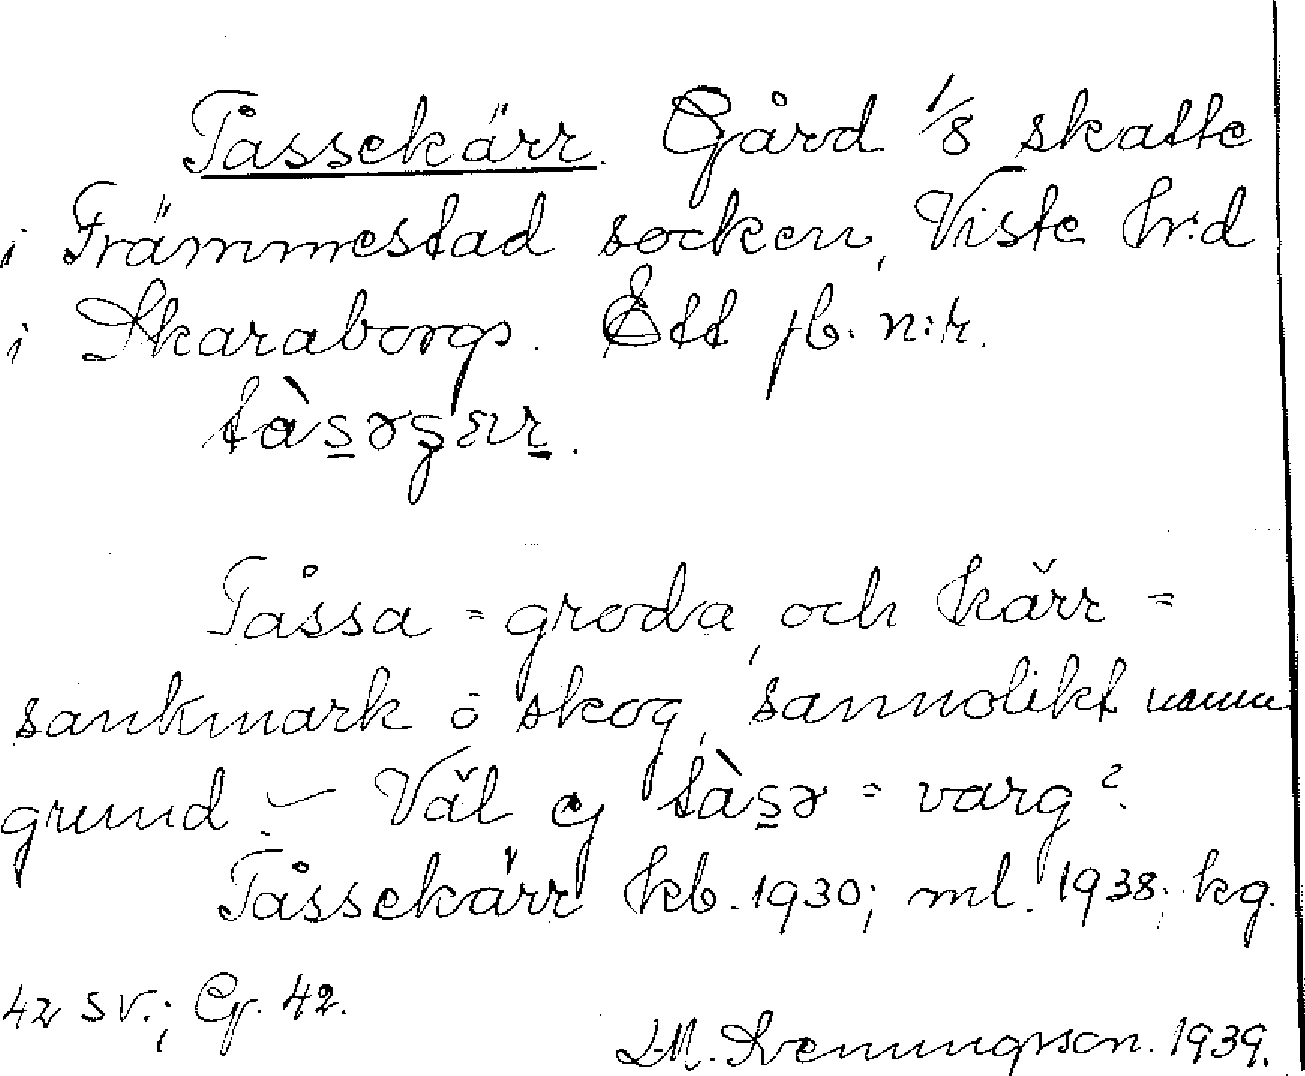 Tåssekärr. Gård 1/8 skatte
i Främmestad socken, Viste hr:d
i Skaraborgs. Ett jb. n:r.
Tåssa = groda, och kärr =
sankmark o skog, sannolikt namn
grund. – Väl ej = varg?
Tåssekärr kb. 1930; ml. 1938; kg.
42 SV.; Cg. 42.
L.M. Svenungson. 1939.